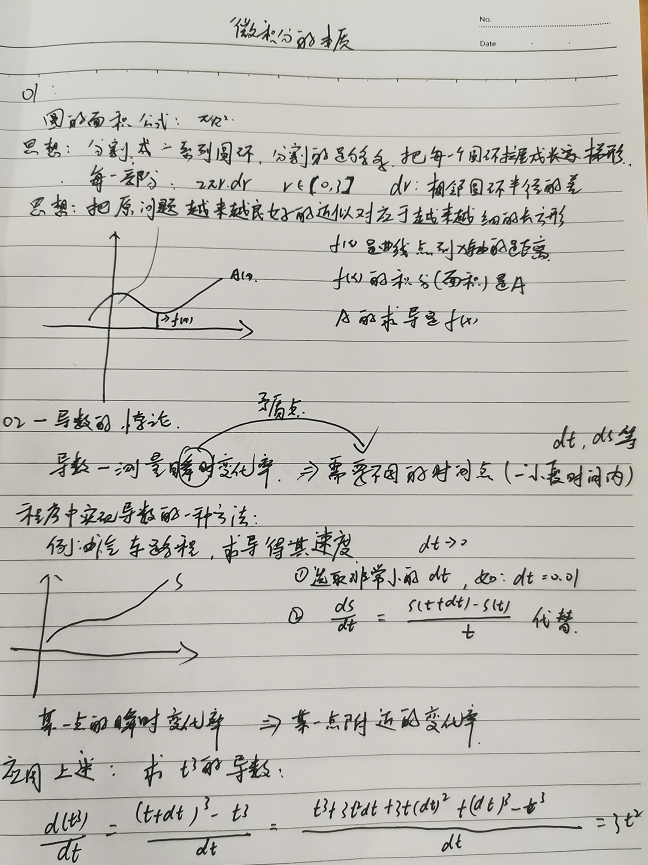 微积分的本质
No.
Date
01:
圆的面积公式: πR².
思想: 分割成一系列圆环, 分割的足够多, 把每一个圆环拉展成长方 梯形.
每一部分: 2πr.dr r∈[0,3] dr: 相邻圆环半径的差
思想: 把原问题 越来越良好的近似对应于越来越细的长方形
f(x)是曲线点到x轴的距离
A(x)
f(x)的积分(面积)是A
f(x)
A的求导是f(x)
矛盾点.
02 — 导数的悖论.
dt, ds等
导数—测量瞬时变化率. ⇒ 需要不同的时间点 (一小段时间内)
程序中实现导数的一种方法:
例如汽车路程, 求导得其速度 dt→0
S
①选取非常小的 dt, 如: dt=0.01
② ds/dt = s(t+dt)-s(t)/t 代替.
某一点的瞬时变化率 ⇒ 某一点附近的变化率.
应用上述: 求 t³的导数:
d(t³)/dt = (t+dt)³-t³/dt = t³+3t²dt+3t(dt)²+(dt)³-t³/dt = 3t²